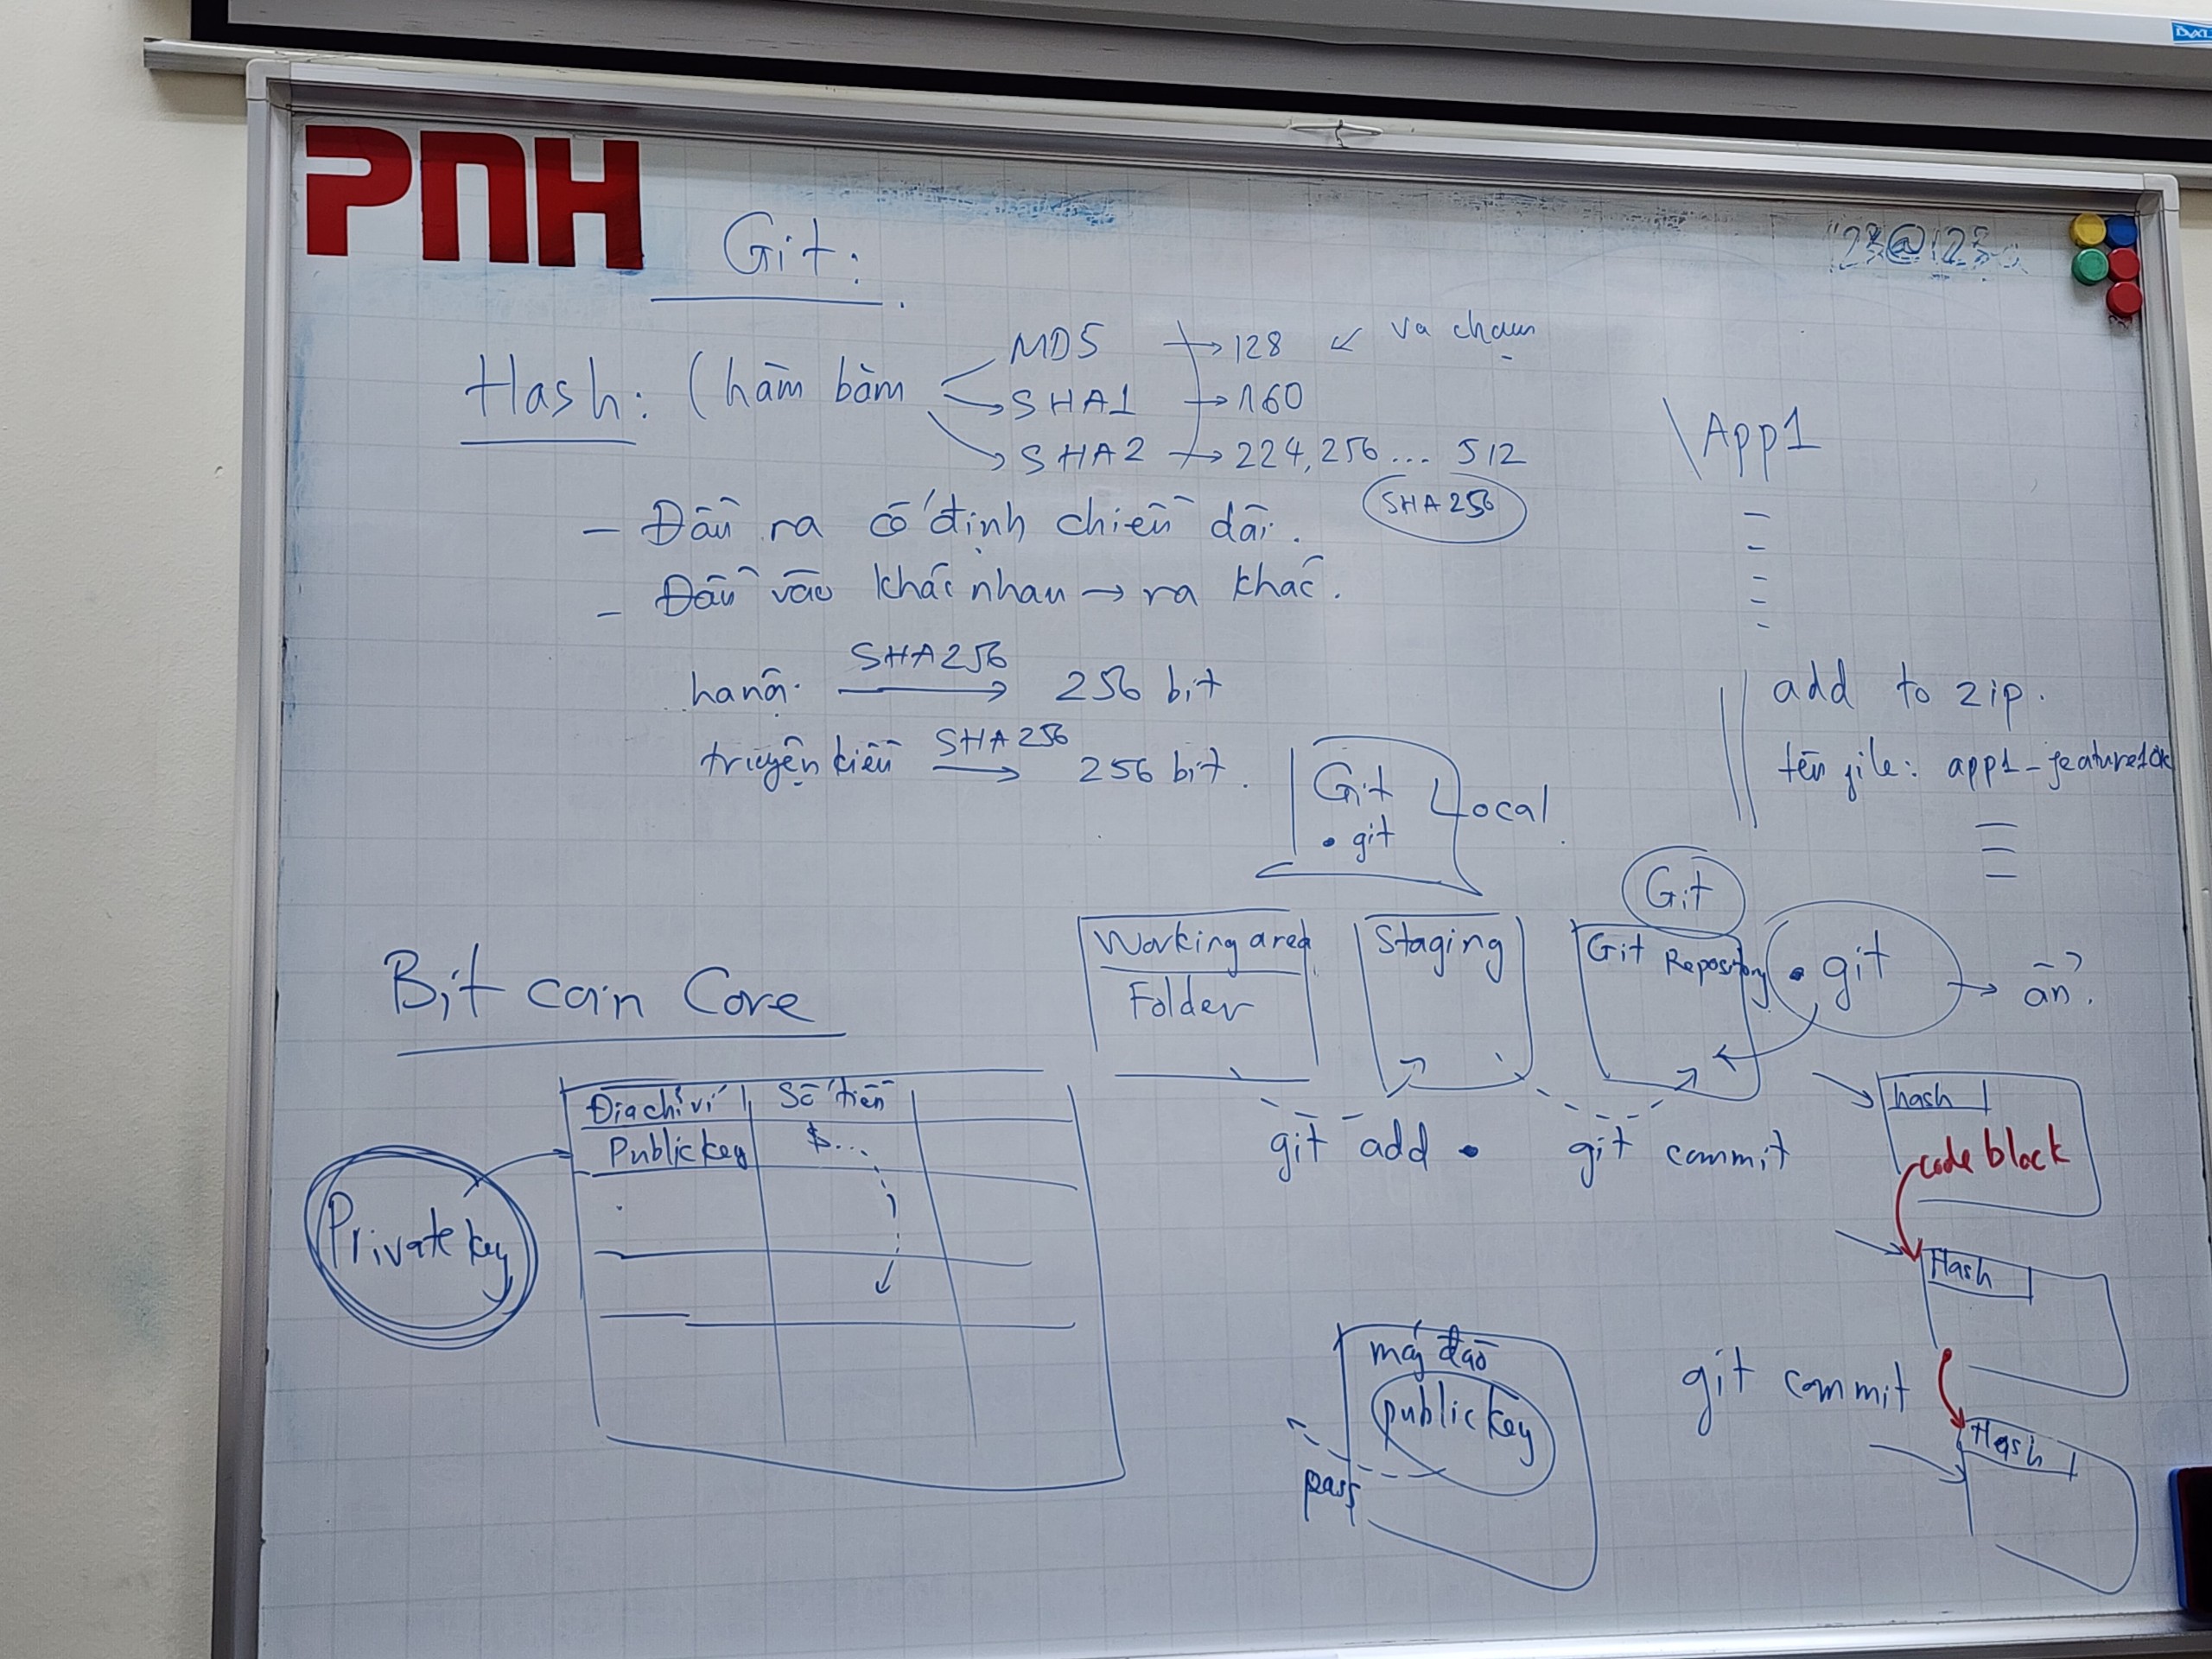 PNH
Git:
Hash: (hàm băm
MD5 → 128 ↙ va chạm
SHA1 → 160
SHA2 → 224, 256 ... 512
SHA 256
- Đầu ra cố định chiều dài.
- Đầu vào khác nhau → ra khác.
hanội SHA256 → 256 bit
truyện kiều SHA 256 → 256 bit.
\App1
add to zip.
tên file: app1-feature1ok
Git Local
.git
Working area
Folder
Staging
Git
Git Repository
.git → ẩn.
git add .
git commit
hash
code block
Hash
git commit
Hash
Bit coin Core
Địa chỉ ví
Số tiền
Public key
$...
Private key
máy đào
public key
pass